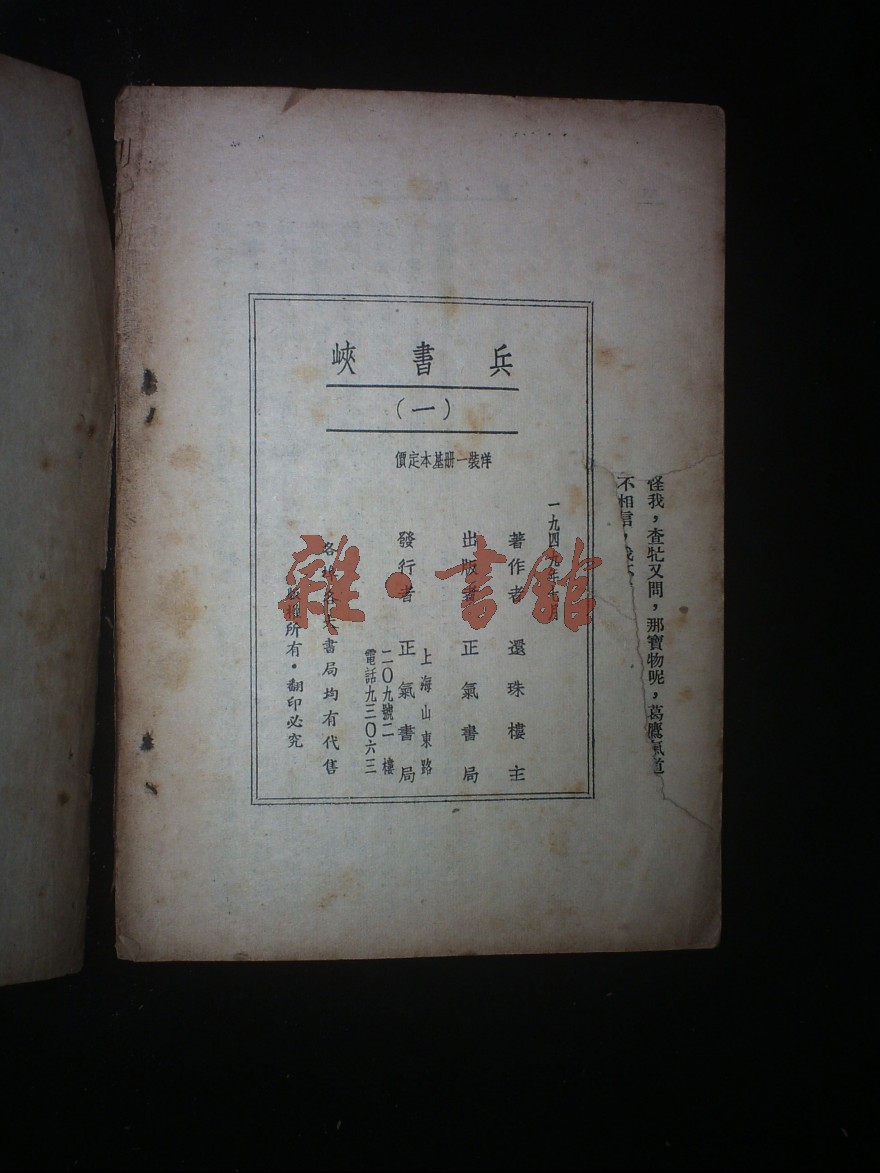 怪我，查牤又問，那寶物呢，葛鷹氣道
不相信，
兵書峽
（一）
洋裝一册基本定價
一九四九年 月
著作者 還珠樓主
出版者 正氣書局
發行者 正氣書局
上海山東路
二〇九號二樓
電話九三〇六三
各埠各大書局均有代售
版權所有・翻印必究
雜・書館